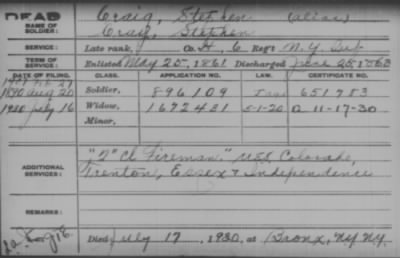 DEAD
NAME OF SOLDIER: Craig, Stephen (alias)
Cray, Stephen
SERVICE: Late rank, Co. H, 6 Reg't N.Y.
TERM OF SERVICE: Enlisted May 25, 1861 Discharged June
DATE OF FILING. CLASS. APPLICATION NO. LAW. CERTIFICATE NO.
1890 Aug 20 Soldier, 896109 651983
1930 July 16 Widow, 1672431 5-1-20 11-17-30
Minor,
ADDITIONAL SERVICES: "2" Cl Fireman" USS Colorado,
Trenton, Essex & Independence
REMARKS:
Died July 17, 1930, at Bronx, NY NY.